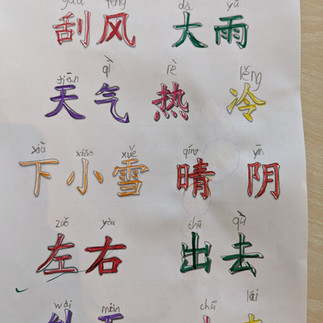 guā fēng dà yǔ
刮风 大雨
tiān qì rè lěng
天气 热 冷
xià xiǎo xuě qíng yīn
下小雪 晴 阴
zuǒ yòu chū qù
左右 出去
wài miàn chū lái